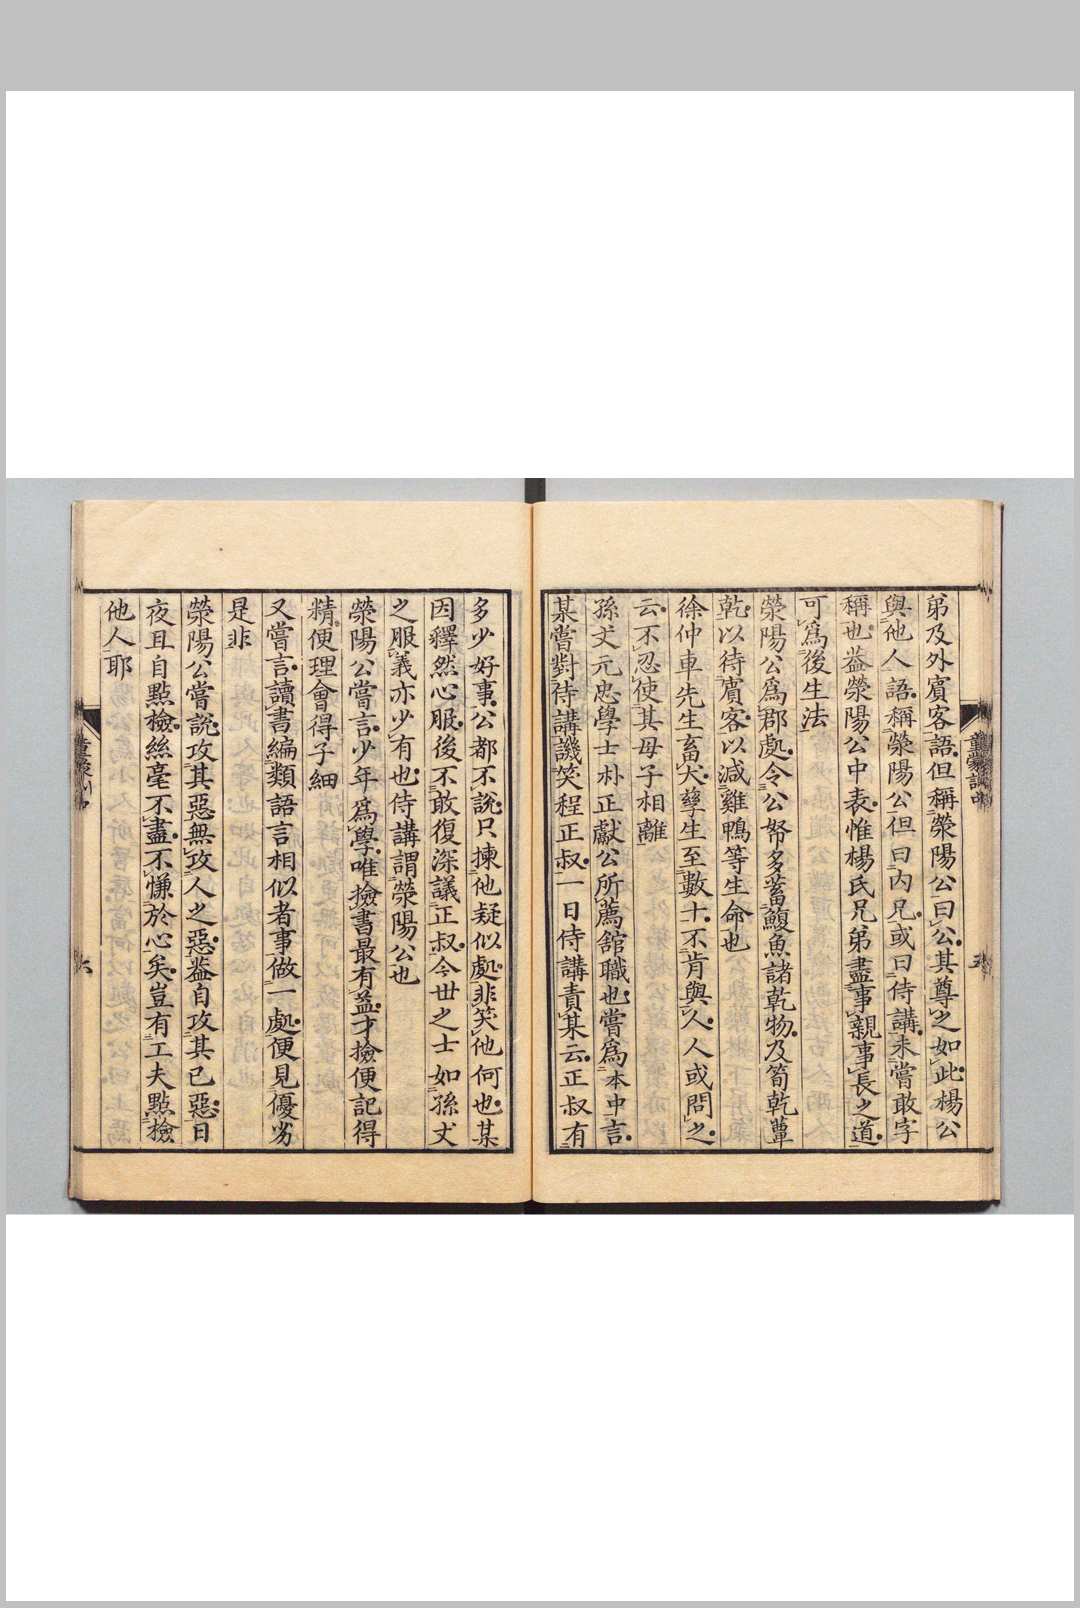 弟及外賓客語但稱滎陽公曰公其尊之如此楊公
與他人語稱滎陽公但曰內兄或曰侍講未嘗敢字
稱也葢滎陽公中表惟楊氏兄弟盡事親事長之道
可爲後生法
滎陽公爲郡處令公帑多蓄鰒魚諸乾物及筍乾蕈
乾以待賓客以減雞鴨等生命也
徐仲車先生畜犬孳生至數十不肯與人人或問之
云不忍使其母子相離
孫丈元忠學士朴正獻公所薦舘職也嘗爲本中言
某嘗對侍講譏笑程正叔一日侍講責某云正叔有
多少好事公都不說只揀他疑似處非笑他何也某
因釋然心服後不敢復深議正叔今世之士如孫丈
之服義亦少有也侍講謂滎陽公也
滎陽公嘗言少年爲學唯撿書最有益才撿便記得
精便理會得子細
又嘗言讀書編類語言相似者事做一處便見優劣
是非
滎陽公嘗說攻其惡無攻人之惡葢自攻其己惡日
夜且自點檢絲毫不盡不慊於心矣豈有工夫點檢
他人耶
童蒙訓中
五
六